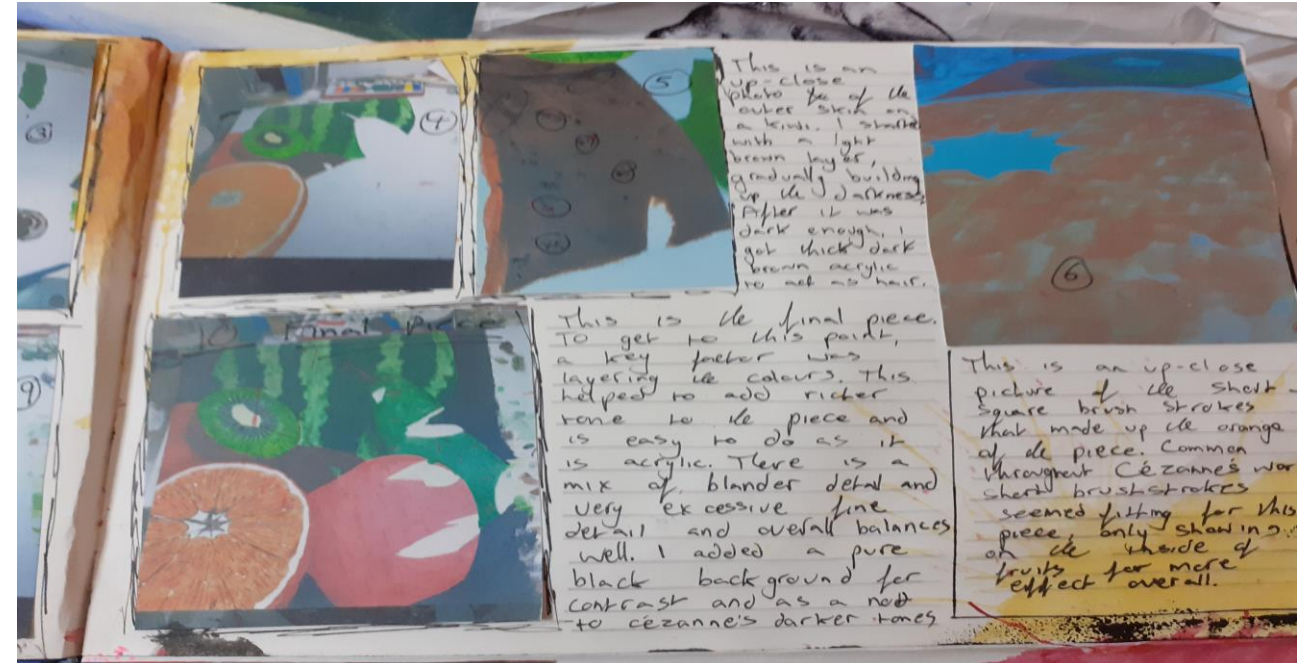 3
4
5
This is an
up-close
photo of the
outer skin on
a kiwi. I started
with a light
brown layer,
gradually building
up the darkness.
After it was
dark enough, I
got thick dark
brown acrylic
to act as hair.
6
9
10 Final Piece
This is the final piece.
To get to this point,
a key factor was
layering the colours. This
helped to add richer
tone to the piece and
is easy to do as it
is acrylic. There is a
mix of blander detail and
very excessive fine
detail and overall balances
well. I added a pure
black background for
contrast and as a nod
to cézanne's darker tones
This is an up-close
picture of the short
square brush strokes
that made up the orange
of the piece. Common
throughout Cézanne's wor
short brushstrokes
seemed fitting for this
piece, only showing
on the inside of
fruits for more
effect overall.